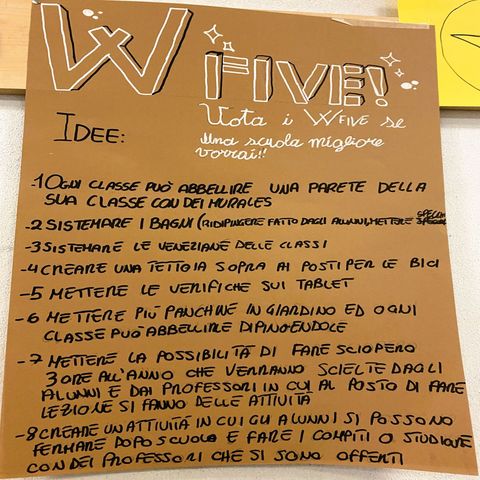 W FIVE!
Vota i WFIVE se
una scuola migliore
vorrai!!
IDEE:
-1 OGNI CLASSE PUÒ ABBELLIRE UNA PARETE DELLA
SUA CLASSE CON DEI MURALES
-2 SISTEMARE I BAGNI (RIDIPINGERE FATTO DAGLI ALUNNI, METTERE SPECCHI
-3 SISTEMARE LE VENEZIANE DELLE CLASSI
-4 CREARE UNA TETTOIA SOPRA AI POSTI PER LE BICI
-5 METTERE LE VERIFICHE SUI TABLET
-6 METTERE PIÙ PANCHINE IN GIARDINO ED OGNI
CLASSE PUÒ ABBELLIRE DIPINGENDOLE
-7 METTERE LA POSSIBILITÀ DI FARE SCIOPERO
3 ORE ALL'ANNO CHE VERRANNO SCIELTE DAGLI
ALUNNI E DAI PROFESSORI IN CUI AL POSTO DI FARE
LEZIONE SI FANNO DELLE ATTIVITÀ
-8 CREARE UN ATTIVITÀ IN CUI GLI ALUNNI SI POSSONO
FERMARE DOPO SCUOLA E FARE I COMPITI O STUDIARE
CON DEI PROFESSORI CHE SI SONO OFFERTI